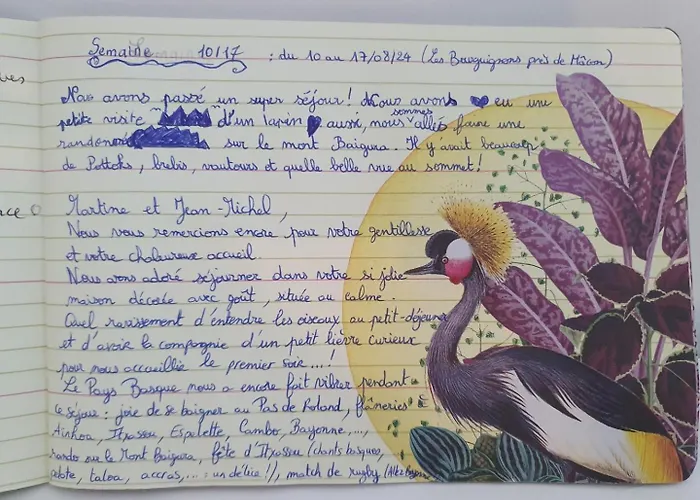 Semaine 10/17 : du 10 au 17/08/24 (Les Bourguignons près de Mâcon)
Nous avons passé un super séjour ! Nous avons eu une
petite visite d'un lapin aussi, nous sommes allés faire une
randonnée sur le mont Baigura. Il y'avait beaucoup
de Pottoks, brebis, vautours et quelle belle vue au sommet !
Martine et Jean-Michel,
Nous vous remercions encore pour votre gentillesse
et votre chaleureux accueil.
Nous avons adoré séjourner dans votre si jolie
maison décorée avec goût, située au calme.
Quel ravissement d'entendre les oiseaux au petit-déjeuner
et d'avoir la compagnie d'un petit lièvre curieux
pour nous accueillie le premier soir...!
Le Pays Basque nous a encore fait vibrer pendant
ce séjour : joie de se baigner au Pas de Roland, flâneries à
Ainhoa, Itxassou, Espelette, Cambo, Bayonne,...,
rando sur le Mont Baigura, fête d'Itxassou (chants basques,
pelote, taloa, accras,... : un délice !), match de rugby